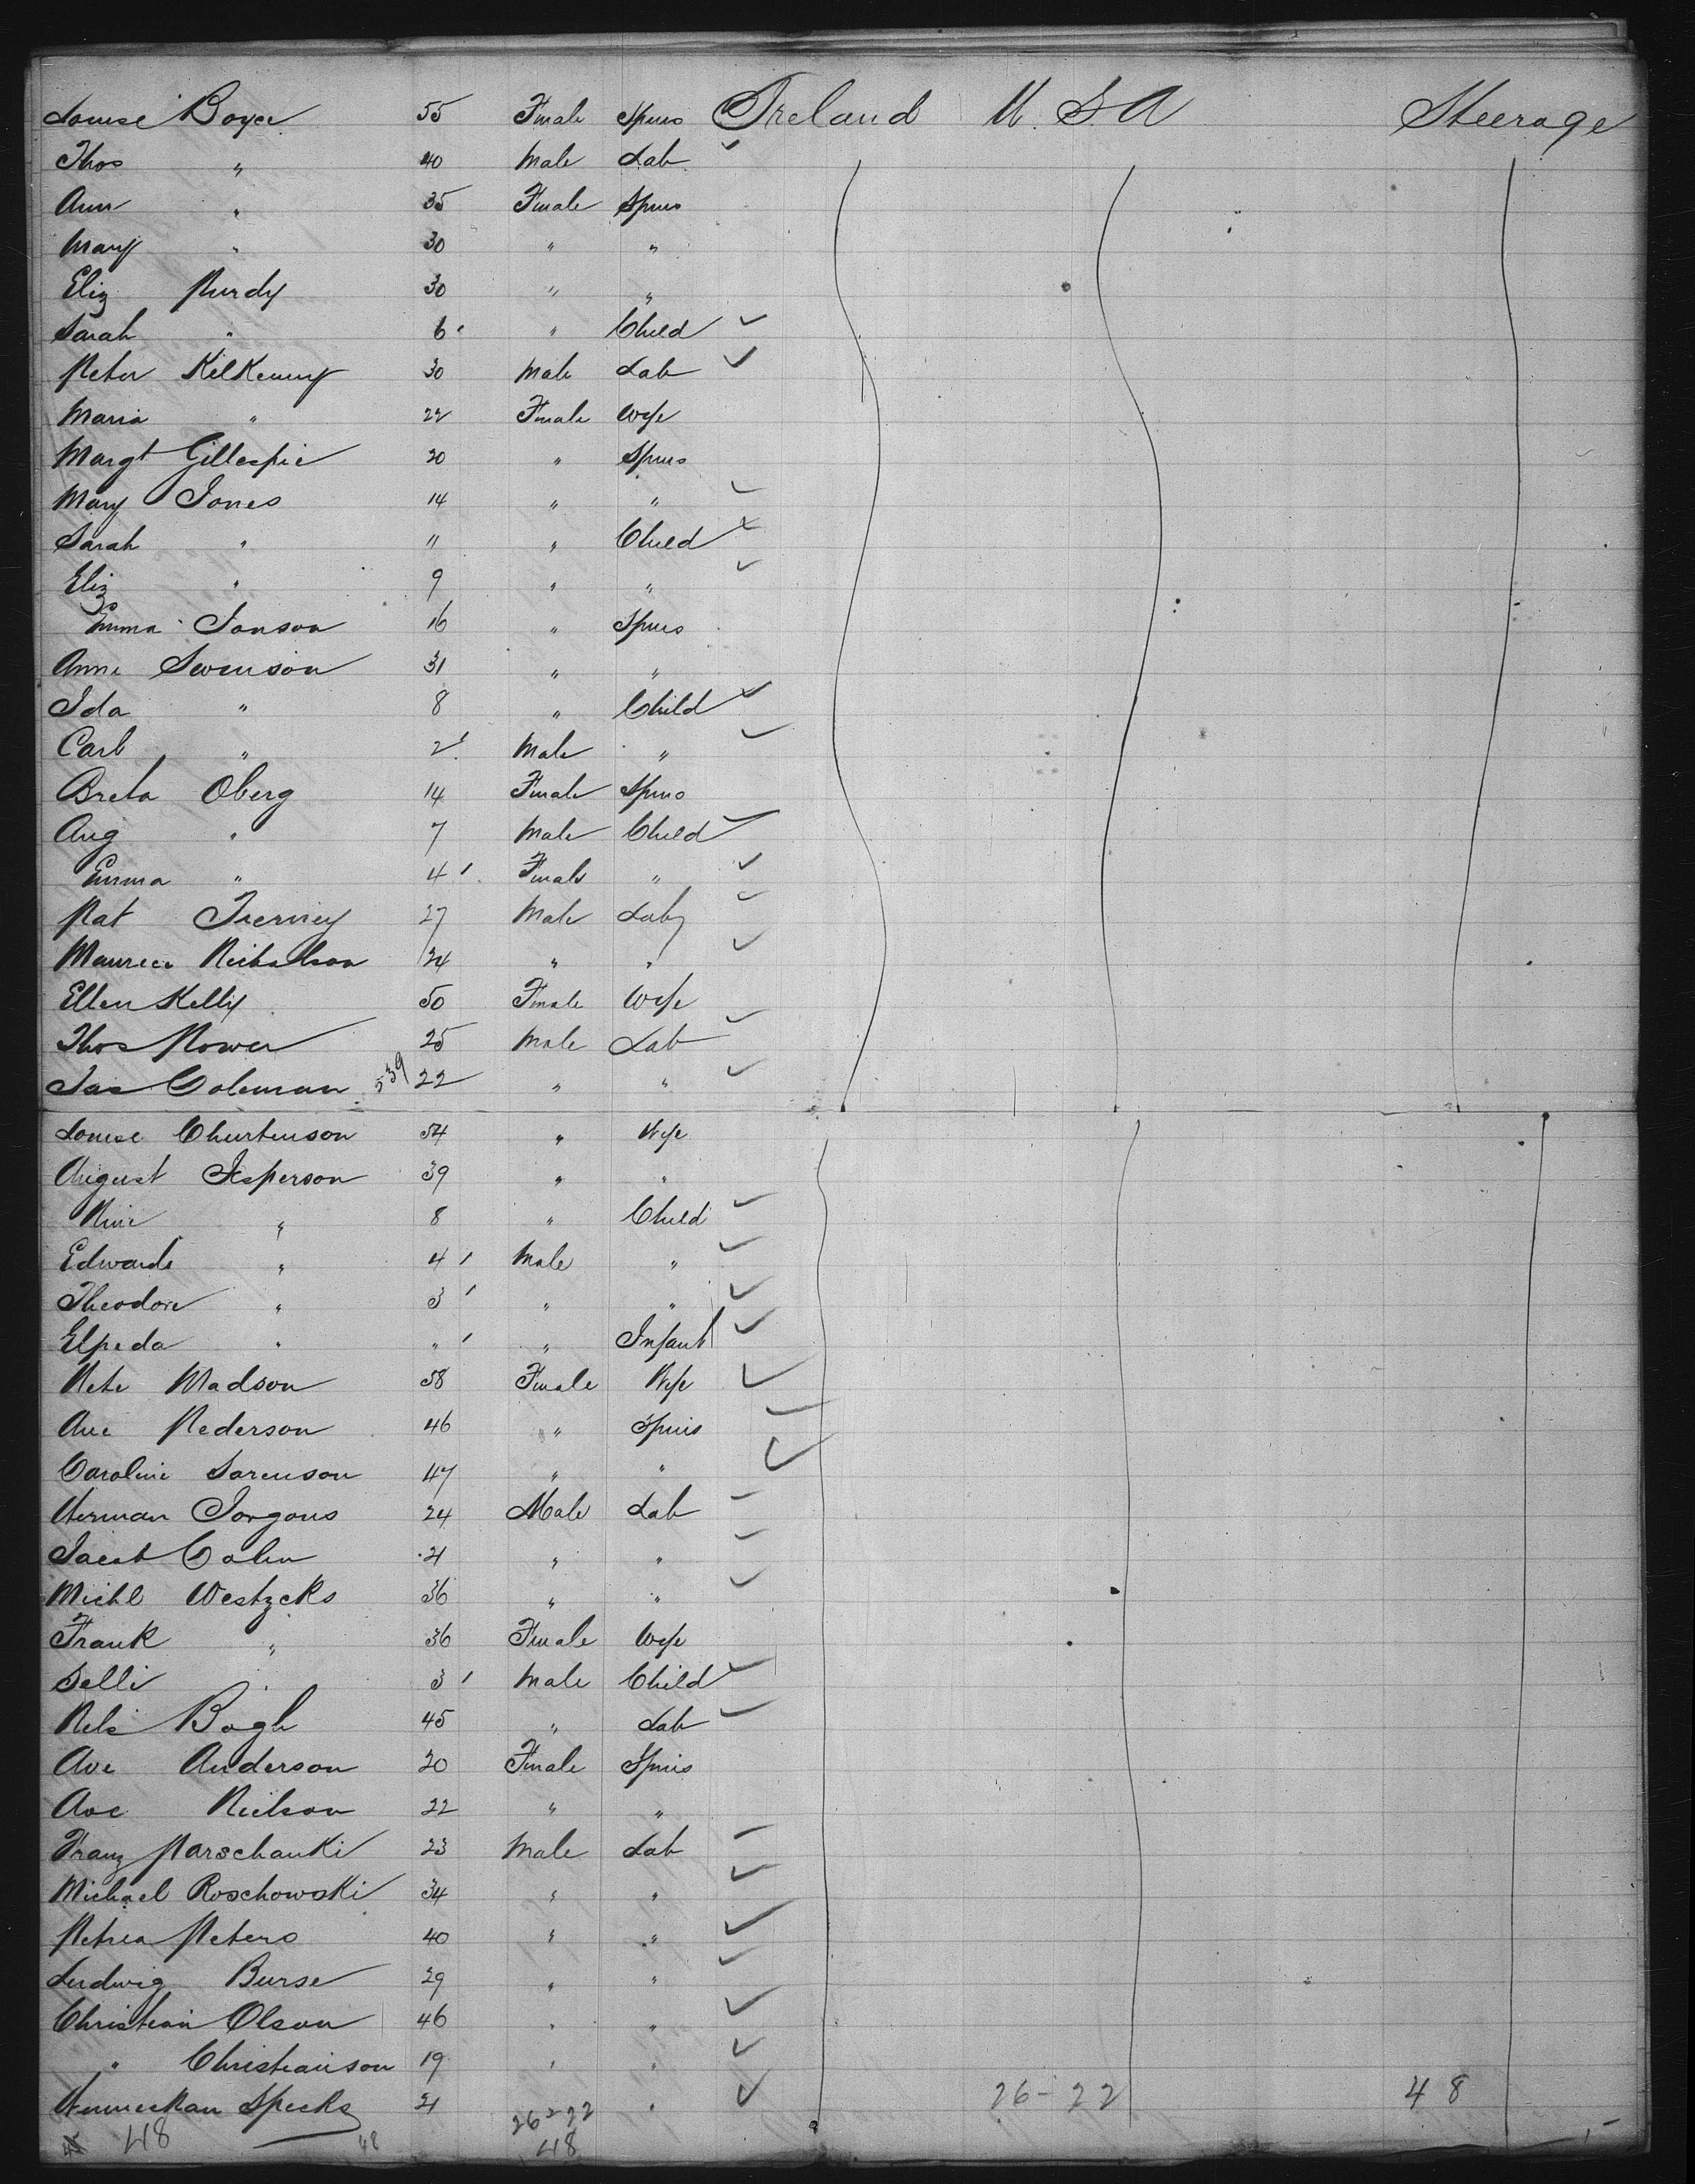 Louise Boyce 55 Female Spins Ireland U.S.A Steerage
Thos " 40 Male Lab
Ann " 35 Female Spins
Mary " 30 " "
Eliz Purdy 30 " "
Sarah " 6 " Child
Peter Kilkenny 30 Male Lab
Maria " 22 Female Wife
Margt Gillespie 20 " Spins
Mary Jones 14 " "
Sarah " 11 " Child
Eliz " 9 " "
Emma Janson 16 " Spins
Anna Swenson 31 " "
Ida " 8 " Child
Carl " 2 Male "
Breta Oberg 14 Female Spins
Aug " 7 Male Child
Emma " 4 Female "
Pat Tierney 27 Male Lab
Maurice Nicholson 24 " "
Ellen Kelly 50 Female Wife
Thos Power 25 Male Lab
Jas Coleman 539 22 " "
Louise 54 " Wife
August Jesperson 39 " "
" 8 " Child
Edwards " 4 Male "
Theodore " 3 " "
Elpeda " " " Infant
Mete Madson 58 Female Wife
Ane Pederson 46 " Spins
Caroline Sorenson 47 " "
Herman Jorgons 24 Male Lab
Jacob 21 " "
Michl Westzcks 36 " "
Frank " 36 Female Wife
Selli " 3 Male Child
Nels Bogh 45 " Lab
Ave Anderson 20 Female Spins
Ave Nielson 22 " "
Franz Parschanki 23 Male Lab
Michael Roschowski 34 " "
Petrea Peters 40 " "
Ludwig Burse 29 " "
Christian Olson 46 " "
" Christianson 19 " "
Specks 21 " 26-22 48
48 48 26-22 48